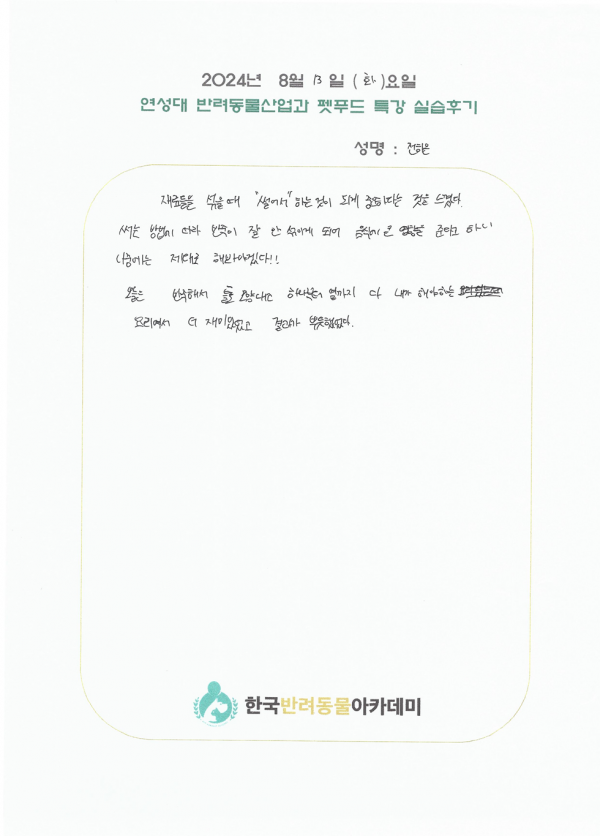 2024년 8월 13일 (화)요일
연성대 반려동물산업과 펫푸드 특강 실습후기
성명 : 전하은
재료들을 섞을 때 "썰어서" 하는 것이 되게 중요하다는 것을 느꼈다.
써는 방법에 따라 반죽이 잘 안 섞이게 되어 음식에 영향을 준다고 하니
나중에는 제대로 해봐야겠다!!
오늘은 반죽해서 하나부터 열까지 다 내가 해야하는
요리여서 더 재미있었고 결과가 뿌듯했었다.
한국반려동물아카데미